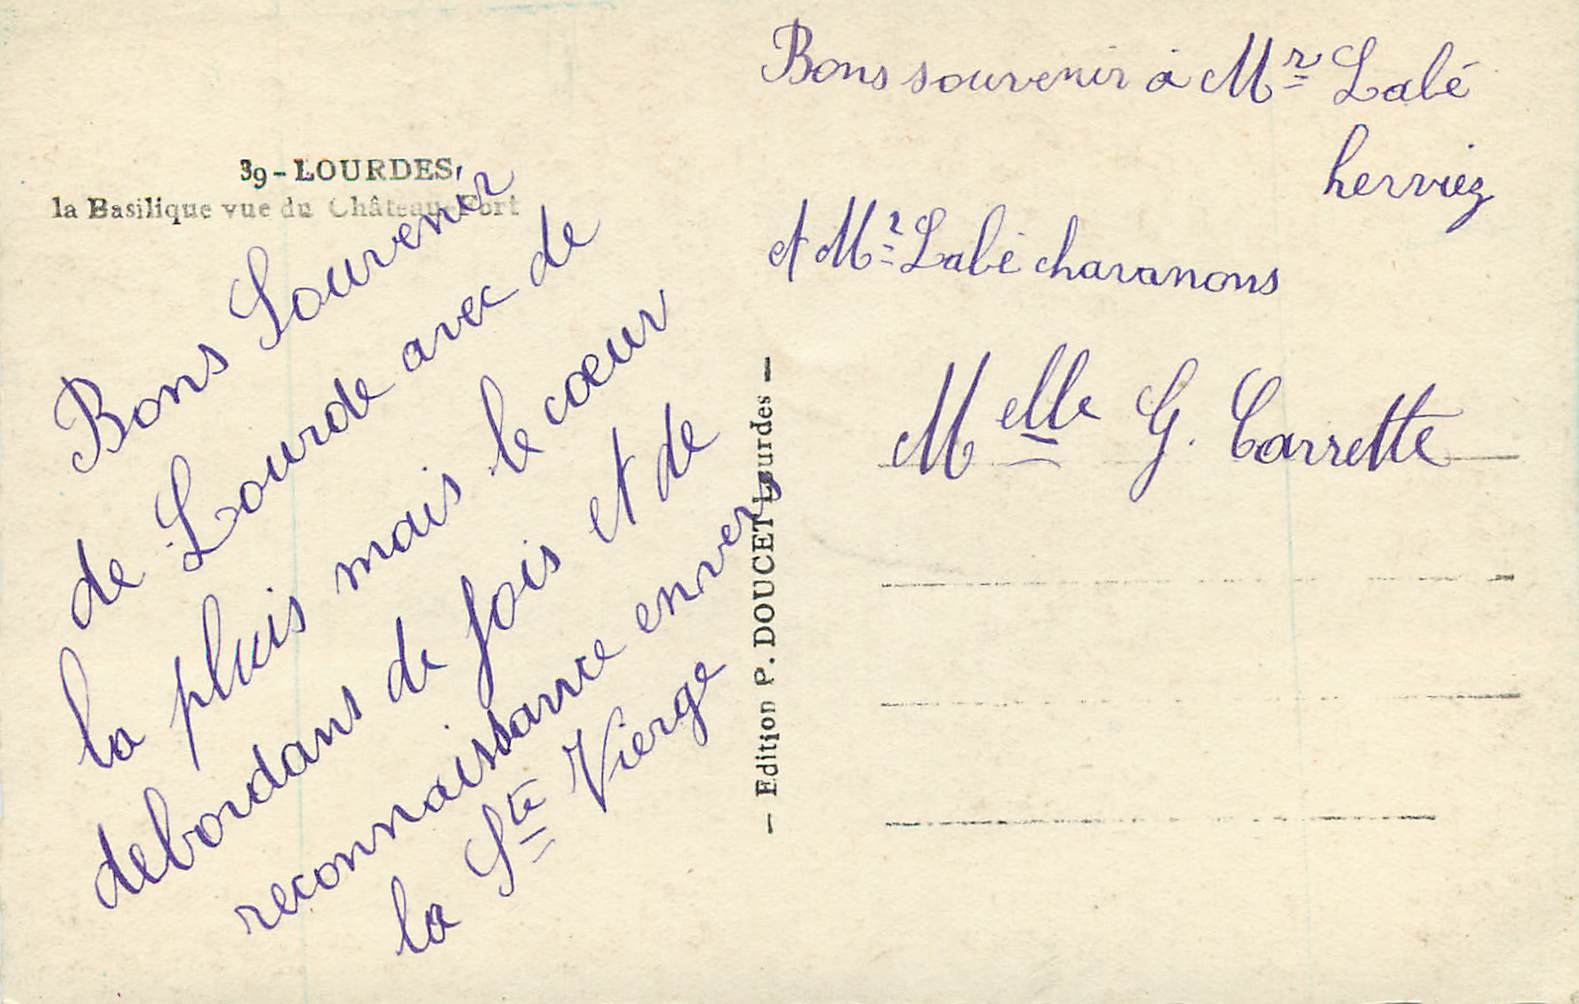 39 - LOURDES
la Basilique vue du Château-Fort
Bons Souvenir
de Lourde avec de
la pluis mais le coeur
debordans de fois et de
reconnaissance envers
la Ste Vierge
— Edition P. DOUCET Lourdes —
Bons souvenir à Mr Labé
herviez
et Mr Labé chavanons
Melle G. Carrette